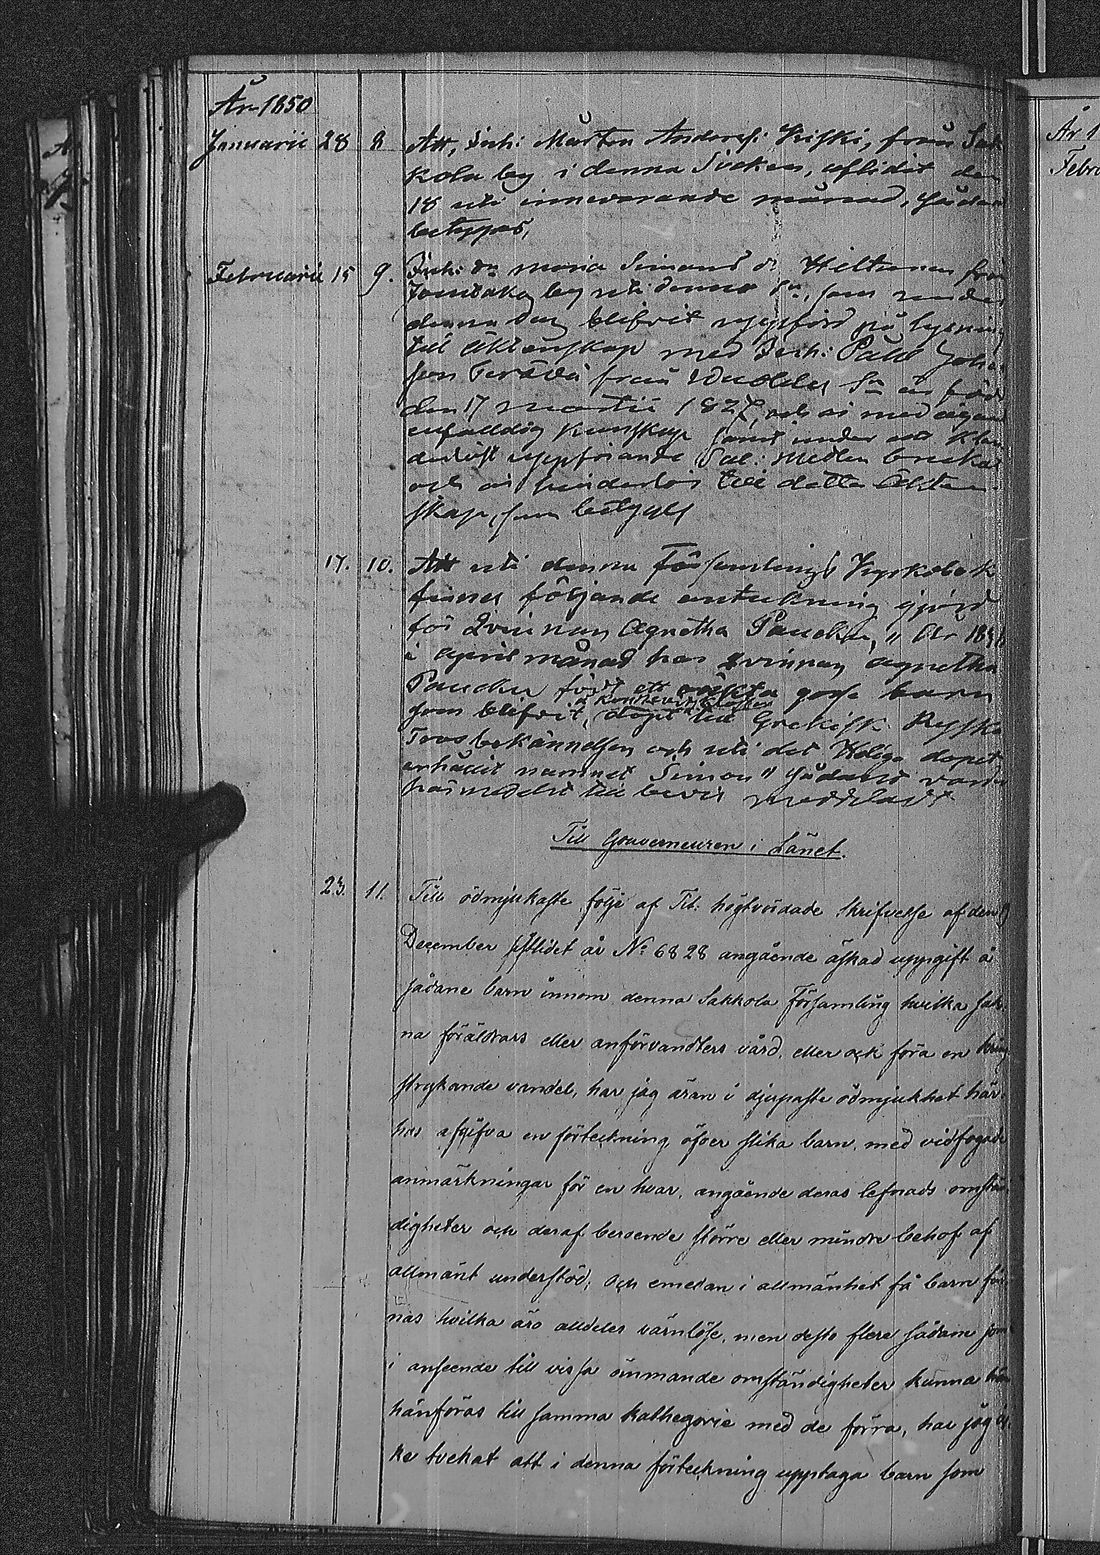 År 1850
Januarii 28 8 Att, Inh: Mårten Andersf: Kiſki, från Sak
kola by i denna Socken, aflidit den
18 uti innevarande månad, sådant
betygas,
Februarii 15 9. Inh: dr Maria Simons dr Hiltunen från
by uti denna Sn, som
denna dag blifvit uppförd på lysning
till äktenskap med Inh: Paul Joh
son från Sn är född
den 17 Martii 1827, och är med
enfaldig kunskap samt under ett klan
derlöst uppförande Sal: Medlen
och är hinderlös till detta Äkten
skap, som betygas
17. 10. Att uti denna Församlings Kyrkobok
finnes följande anteckning gjord
för Qvinnan Agnetha Paucku, " År
i April månad har qvinnan Agnetha
Paucku födt ett oäkta gosse barn
som blifvit, döpt till Grekisk Ryska
Trosbekännelsen och uti det Heliga dopet
erhållit namnet Simon " sådant varder
härmedelst till bevis meddeladt
Till Gouverneuren i Länet.
23. 11. Till ödmjukaste följe af Tit: högtvördade skrifvelse af den 9
December sistlidet år No 6828 angående äskad uppgift å
sådane barn innom denna Sakkola Församling hvilka sak
na föräldrars eller anförvandters vård, eller ock föra en kring
strykande vandel, har jag äran i djupaste ödmjukhet här
hos afgifva en förteckning öfver slika barn, med vidfogade
anmärkningar för en hvar, angående deras lefnads omstän
digheter och deraf beroende större eller mindre behof af
allmänt understöd; och emedan i allmänhet få barn fin
nas hvilka äro alldeles värnlöse, men desto flere sådane som
i anseende till vissa ömmande omständigheter kunna
hänföras till samma kathegorie med de förra, har jag ic
ke tvekat att i denna förteckning upptaga barn som
År 1
Febru